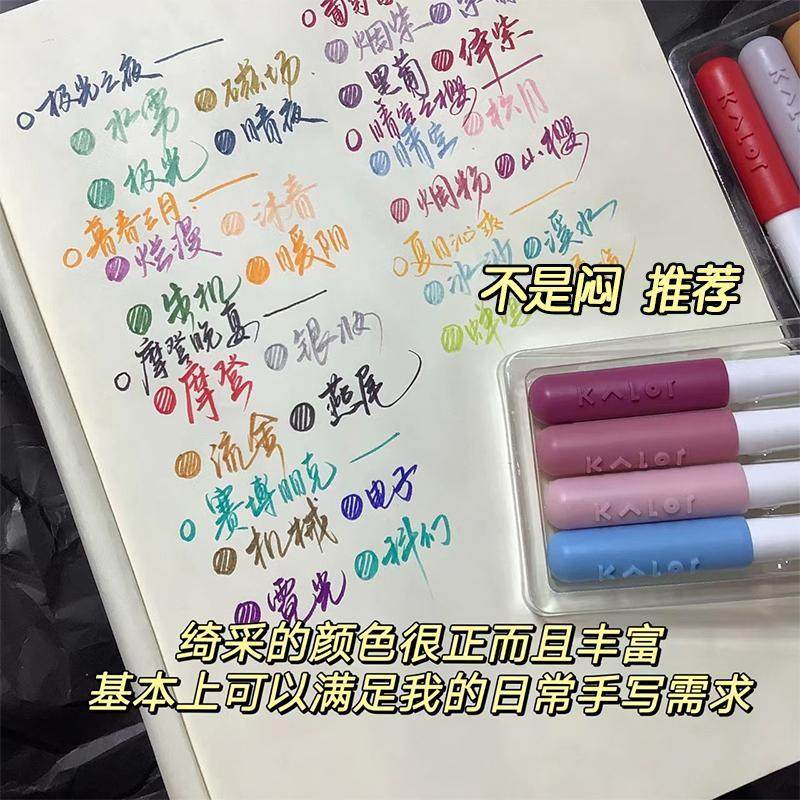 极光之夜
水雾
磁场
极光
暗夜
暮春三月
烂漫
沐春
生机
暖阳
摩登晚夏
摩登
银妆
流金
燕尾
赛博朋克
机械
电子
霓光
烟紫
黑葡
绛紫
晴空之樱
晴空
松月
烟粉
小樱
夏日沁爽
冰沙
溪水
不是闷 推荐
KALOr
KALOr
KALOr
KALOr
KALOr
KALOr
绮采的颜色很正而且丰富
基本上可以满足我的日常手写需求